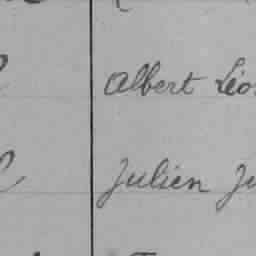 Albert Léo
Julien Ju